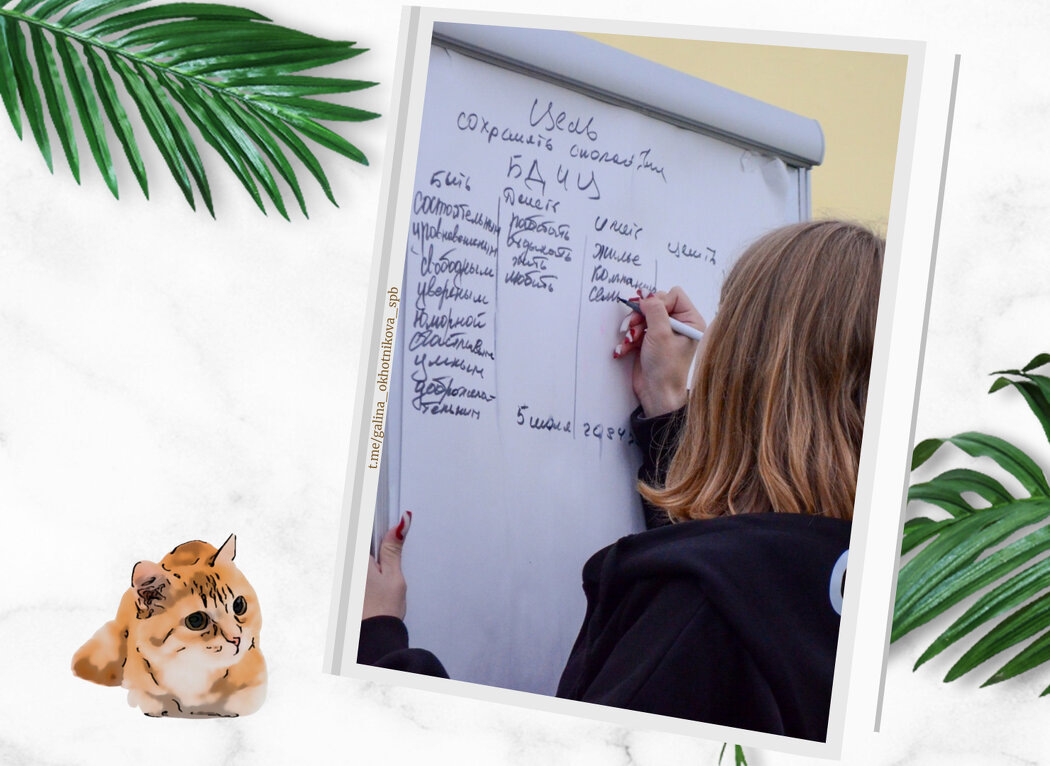 Цель
сохранять
БДИЦ
Быть
состоятельным
уровновешенным
свободным
увереным
юморной
счастливым
умным
доброжела-
тельным
Делать
работать
отдыхать
жить
любить
Иметь
жилье
компанию
семь
5 июля
t.me/galina_okhotnikova_spb